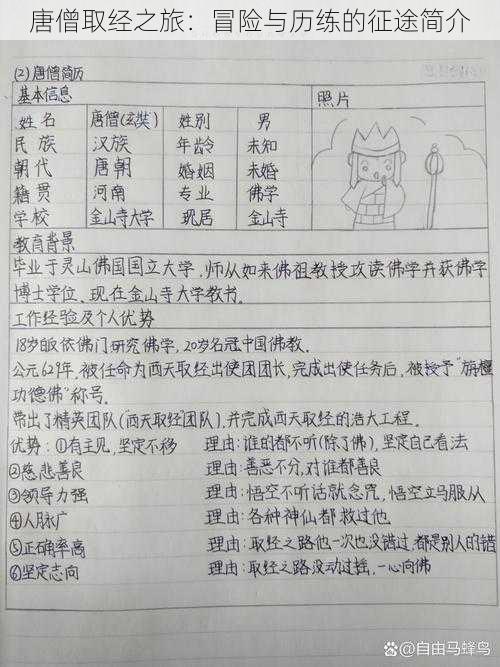 唐僧取经之旅：冒险与历练的征途简介
(2)唐僧简历
基本信息 照片
姓名 唐僧(玄奘) 姓别 男
民族 汉族 年龄 未知
朝代 唐朝 婚姻 未婚
籍贯 河南 专业 佛学
学校 金山寺大学 现居 金山寺
教育背景
毕业于灵山佛国国立大学，师从如来佛祖教授攻读佛学并获佛学
博士学位，现在金山寺大学教书。
工作经验及个人优势
18岁皈依佛门研究佛学，20岁名冠中国佛教。
公元629年，被任命为西天取经出使团团长，完成出使任务后，被授予"旃檀
功德佛"称号。
带出了精英团队(西天取经团队)，并完成西天取经的浩大工程。
优势：①有主见，坚定不移 理由：谁的都不听(除了佛)，坚定自己看法
②慈悲善良 理由：善恶不分，对谁都善良
③领导力强 理由：悟空不听话就念咒，悟空立马服从
④人脉广 理由：各种神仙都救过他
⑤正确率高 理由：取经之路他一次也没错过，都是别人的错
⑥坚定志向 理由：取经之路没动过摇，一心向佛
@自由马蜂鸟